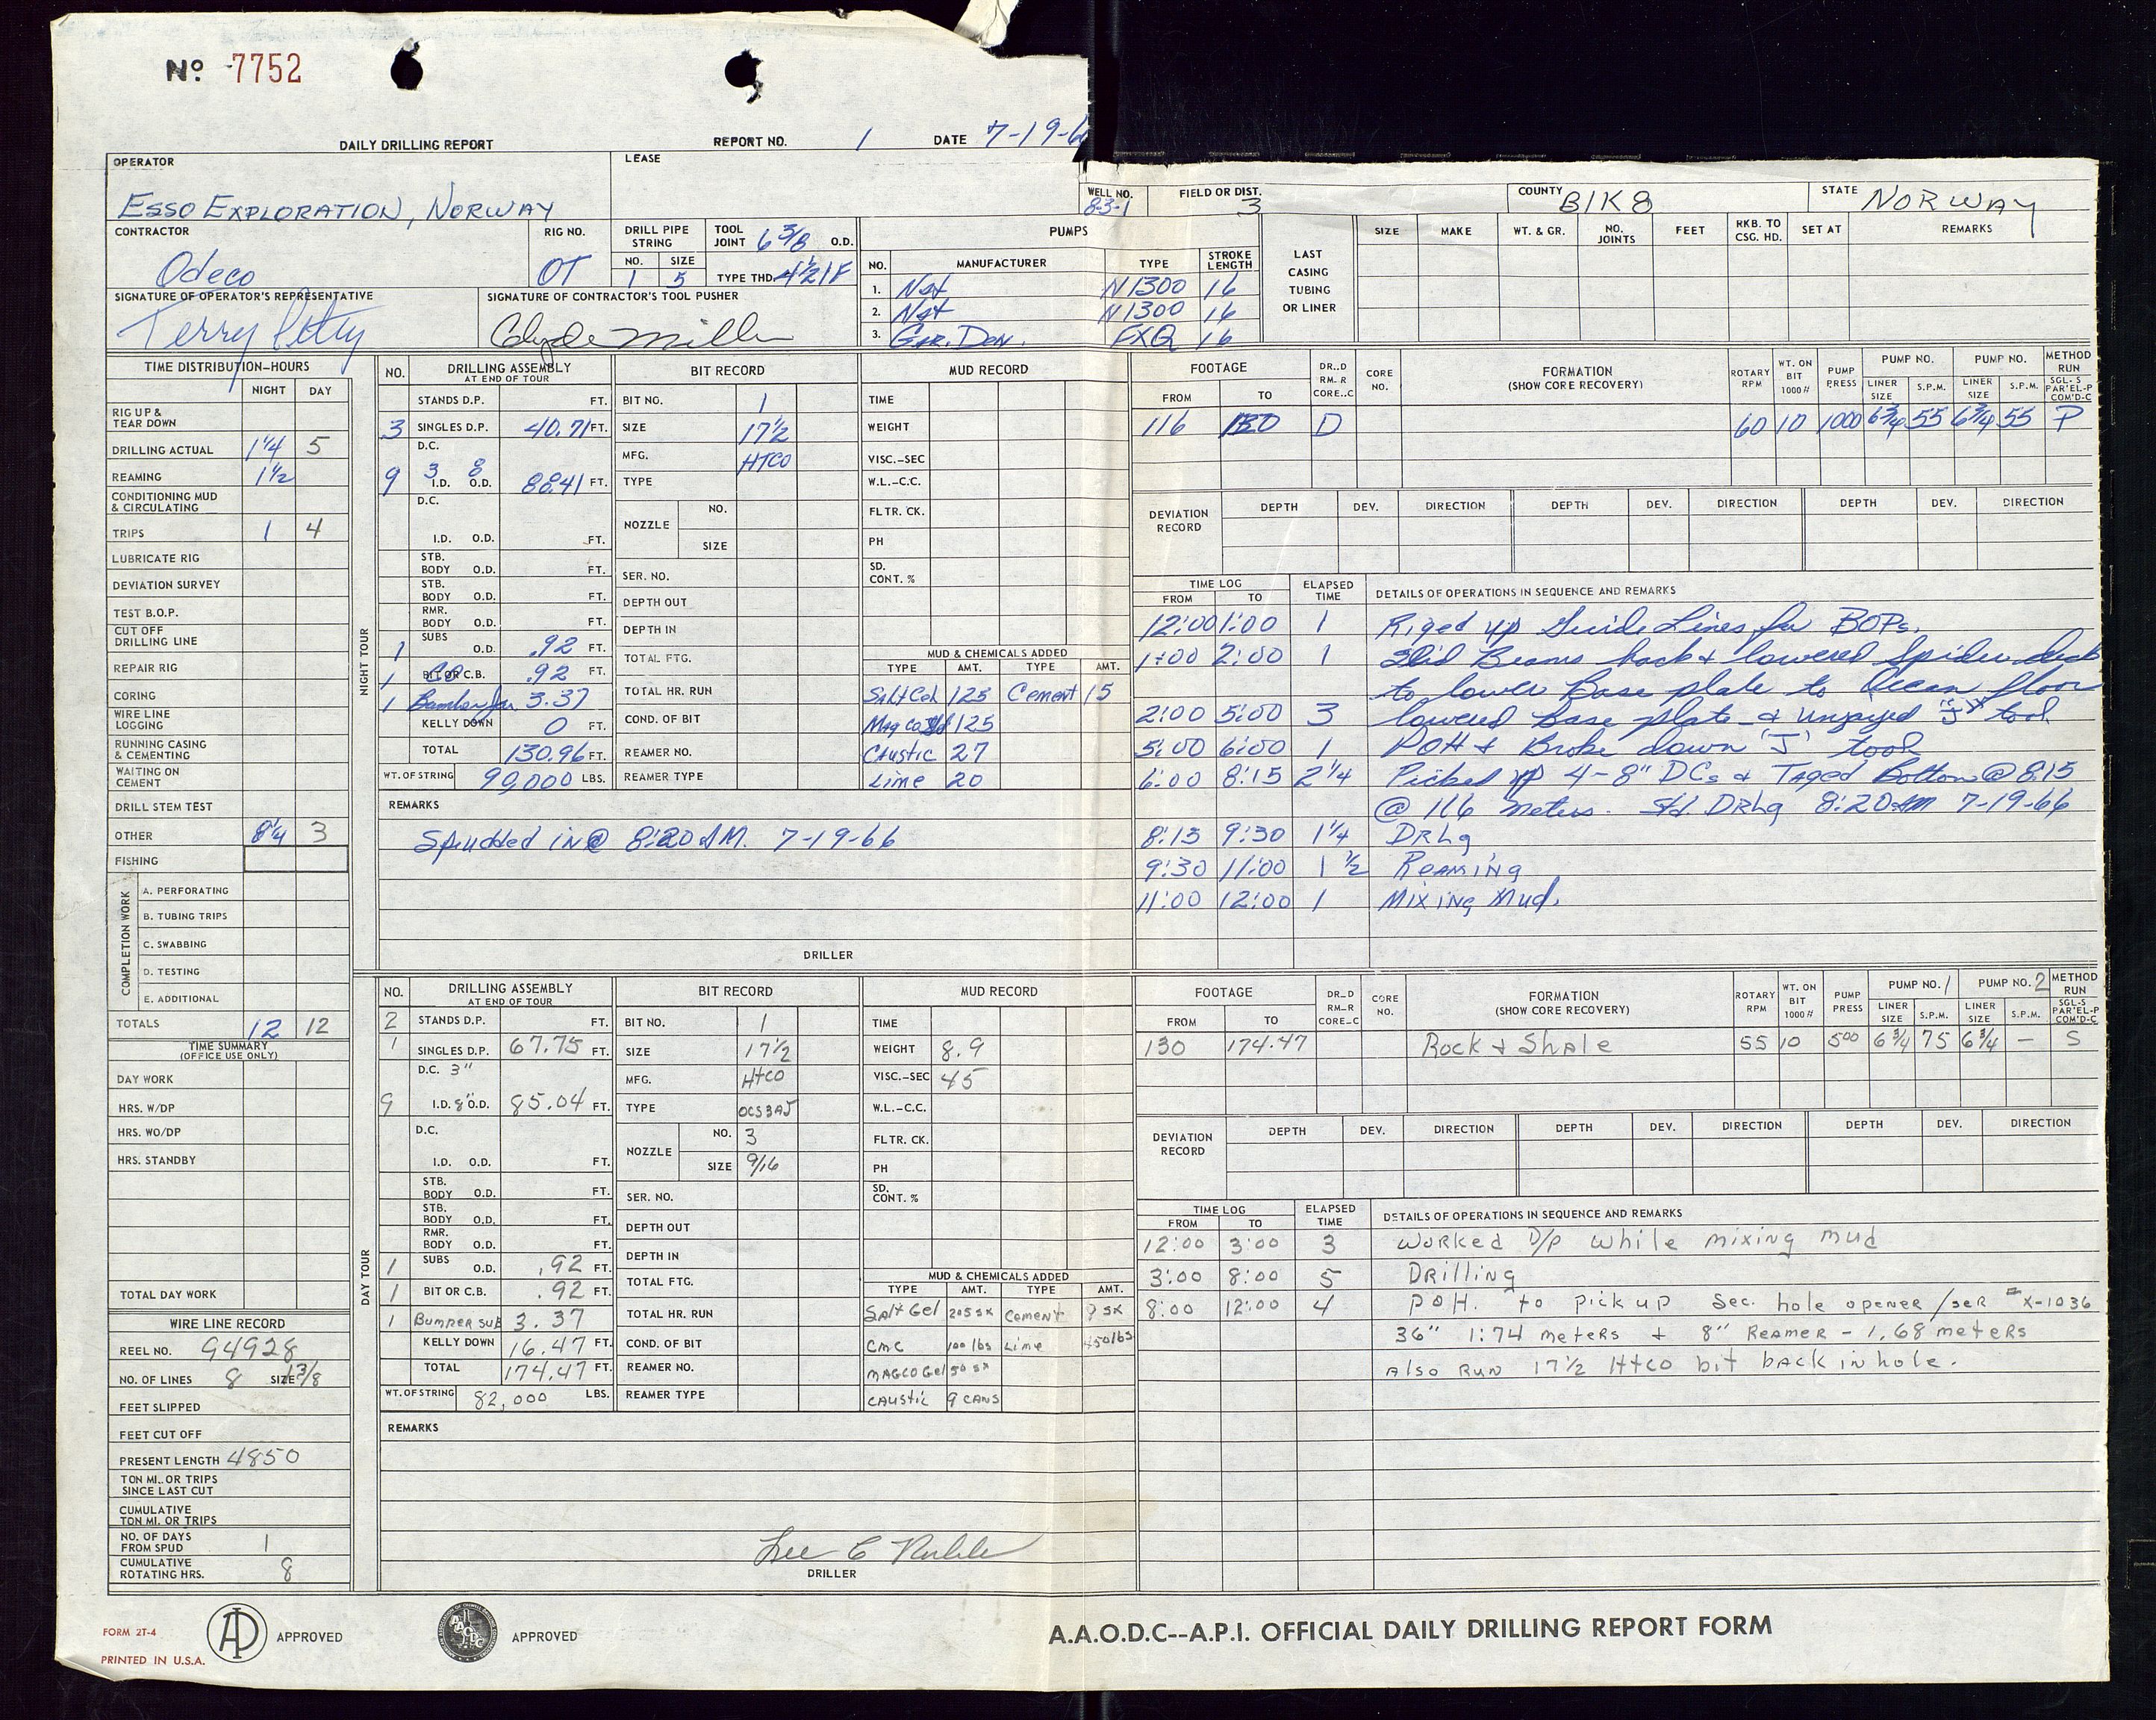 No 7752
DAILY DRILLING REPORT REPORT NO. 1 DATE 7-19-6
OPERATOR LEASE WELL NO. FIELD OR DIST. COUNTY STATE
ESSO EXPLORATION, NORWAY 8-3-1 3 BIK 8 NORWAY
CONTRACTOR RIG NO. DRILL PIPE STRING TOOL JOINT 6 3/8 O.D. PUMPS
Odeco OT NO. SIZE 1 5 TYPE THD. 4 1/2 IF
NO. MANUFACTURER TYPE STROKE LENGTH
1. Nat N1300 16
2. Nat N1300 16
3. Gar. Den. FXQ 16
LAST CASING TUBING OR LINER SIZE MAKE WT. & GR. NO. JOINTS FEET RKB. TO CSG. HD. SET AT REMARKS
SIGNATURE OF OPERATOR'S REPRESENTATIVE SIGNATURE OF CONTRACTOR'S TOOL PUSHER
Terry Petty Clyde Miller
TIME DISTRIBUTION-HOURS
NIGHT DAY
RIG UP & TEAR DOWN
DRILLING ACTUAL 1 1/4 5
REAMING 1 1/2
CONDITIONING MUD & CIRCULATING
TRIPS 1 4
LUBRICATE RIG
DEVIATION SURVEY
TEST B.O.P.
CUT OFF DRILLING LINE
REPAIR RIG
CORING
WIRE LINE LOGGING
RUNNING CASING & CEMENTING
WAITING ON CEMENT
DRILL STEM TEST
OTHER 8 1/4 3
FISHING
COMPLETION WORK
A. PERFORATING
B. TUBING TRIPS
C. SWABBING
D. TESTING
E. ADDITIONAL
TOTALS 12 12
TIME SUMMARY (OFFICE USE ONLY)
DAY WORK
HRS. W/DP
HRS. WO/DP
HRS. STANDBY
TOTAL DAY WORK
WIRE LINE RECORD
REEL NO. 94928
NO. OF LINES 8 SIZE 1 3/8
FEET SLIPPED
FEET CUT OFF
PRESENT LENGTH 4850
TON MI. OR TRIPS SINCE LAST CUT
CUMULATIVE TON MI. OR TRIPS
NO. OF DAYS FROM SPUD 1
CUMULATIVE ROTATING HRS. 8
NIGHT TOUR
NO. DRILLING ASSEMBLY AT END OF TOUR
STANDS D.P. FT.
3 SINGLES D.P. 40.71 FT.
D.C.
9 3 I.D. 8 O.D. 88.41 FT.
D.C.
I.D. O.D. FT.
STB. BODY O.D. FT.
STB. BODY O.D. FT.
RMR. BODY O.D. FT.
1 SUBS O.D. .92
1 BIT OR C.B. .92 FT.
1 3.37
KELLY DOWN 0 FT.
TOTAL 130.96 FT.
WT. OF STRING 90,000 LBS.
BIT RECORD
BIT NO. 1
SIZE 17 1/2
MFG. HTCO
TYPE
NOZZLE NO. SIZE
SER. NO.
DEPTH OUT
DEPTH IN
TOTAL FTG.
TOTAL HR. RUN
COND. OF BIT
REAMER NO.
REAMER TYPE
MUD RECORD
TIME
WEIGHT
VISC.-SEC
W.L.-C.C.
FLTR. CK.
PH
SD. CONT. %
MUD & CHEMICALS ADDED
TYPE AMT. TYPE AMT.
Salt Gel 125 Cement 15
Magco Gel 125
Caustic 27
Lime 20
REMARKS
Spudded in @ 8:20 AM. 7-19-66
DRILLER
FOOTAGE FROM TO DR..D RM..R CORE..C CORE NO. FORMATION (SHOW CORE RECOVERY) ROTARY RPM WT. ON BIT 1000# PUMP PRESS PUMP NO. LINER SIZE S.P.M. PUMP NO. LINER SIZE S.P.M. METHOD RUN SGL-S PAR'EL-P COM'D-C
116 130 D 60 10 1000 6 3/4 55 6 3/4 55 P
DEVIATION RECORD DEPTH DEV. DIRECTION DEPTH DEV. DIRECTION DEPTH DEV. DIRECTION
TIME LOG FROM TO ELAPSED TIME DETAILS OF OPERATIONS IN SEQUENCE AND REMARKS
12:00 1:00 1 Riged up Guide Lines for BOPs.
1:00 2:00 1 Slid Beams back & lowered Spider deck
to lower Base plate to Ocean floor
2:00 5:00 3 lowered Base plate & unjayed "J" tool
5:00 6:00 1 POH & Broke down "J" tool
6:00 8:15 2 1/4 Picked up 4-8" DCs & Taged Bottom @ 8:15
@ 116 meters. Std. DRLg 8:20 AM 7-19-66
8:15 9:30 1 1/4 DRLg
9:30 11:00 1 1/2 Reaming
11:00 12:00 1 Mixing Mud.
DAY TOUR
NO. DRILLING ASSEMBLY AT END OF TOUR
2 STANDS D.P. FT.
1 SINGLES D.P. 67.75 FT.
D.C. 3"
9 I.D. 8" O.D. 85.04 FT.
D.C.
I.D. O.D. FT.
STB. BODY O.D. FT.
STB. BODY O.D. FT.
RMR. BODY O.D. FT.
1 SUBS O.D. .92 FT.
1 BIT OR C.B. .92 FT.
1 Bumper sub 3.37
KELLY DOWN 16.47 FT.
TOTAL 174.47 FT.
WT. OF STRING 82,000 LBS.
BIT RECORD
BIT NO. 1
SIZE 17 1/2
MFG. HTCO
TYPE OCS3AJ
NOZZLE NO. 3
SIZE 9/16
SER. NO.
DEPTH OUT
DEPTH IN
TOTAL FTG.
TOTAL HR. RUN
COND. OF BIT
REAMER NO.
REAMER TYPE
MUD RECORD
TIME
WEIGHT 8.9
VISC.-SEC 45
W.L.-C.C.
FLTR. CK.
PH
SD. CONT. %
MUD & CHEMICALS ADDED
TYPE AMT. TYPE AMT.
Salt Gel 205 sx Cement 9 sx
CMC 100 lbs Lime 450 lbs
MAGCO Gel 50 sx
CAUSTIC 9 CANS
REMARKS
DRILLER
FOOTAGE FROM TO DR_D RM-R CORE-C CORE NO. FORMATION (SHOW CORE RECOVERY) ROTARY RPM WT. ON BIT 1000# PUMP PRESS PUMP NO. 1 LINER SIZE S.P.M. PUMP NO. 2 LINER SIZE S.P.M. METHOD RUN SGL-S PAR'EL-P COM'D-C
130 174.47 Rock & Shale 55 10 500 6 3/4 75 6 3/4 — S
DEVIATION RECORD DEPTH DEV. DIRECTION DEPTH DEV. DIRECTION DEPTH DEV. DIRECTION
TIME LOG FROM TO ELAPSED TIME DETAILS OF OPERATIONS IN SEQUENCE AND REMARKS
12:00 3:00 3 Worked D/P while mixing mud
3:00 8:00 5 Drilling
8:00 12:00 4 POH. to pick up Sec. hole opener/ser #X-1036
36" 1:74 meters + 8" Reamer - 1.68 meters
Also Run 17 1/2 HTCO bit back in hole.
FORM 2T-4
PRINTED IN U.S.A.
API APPROVED
AAODC APPROVED
A.A.O.D.C--A.P.I. OFFICIAL DAILY DRILLING REPORT FORM